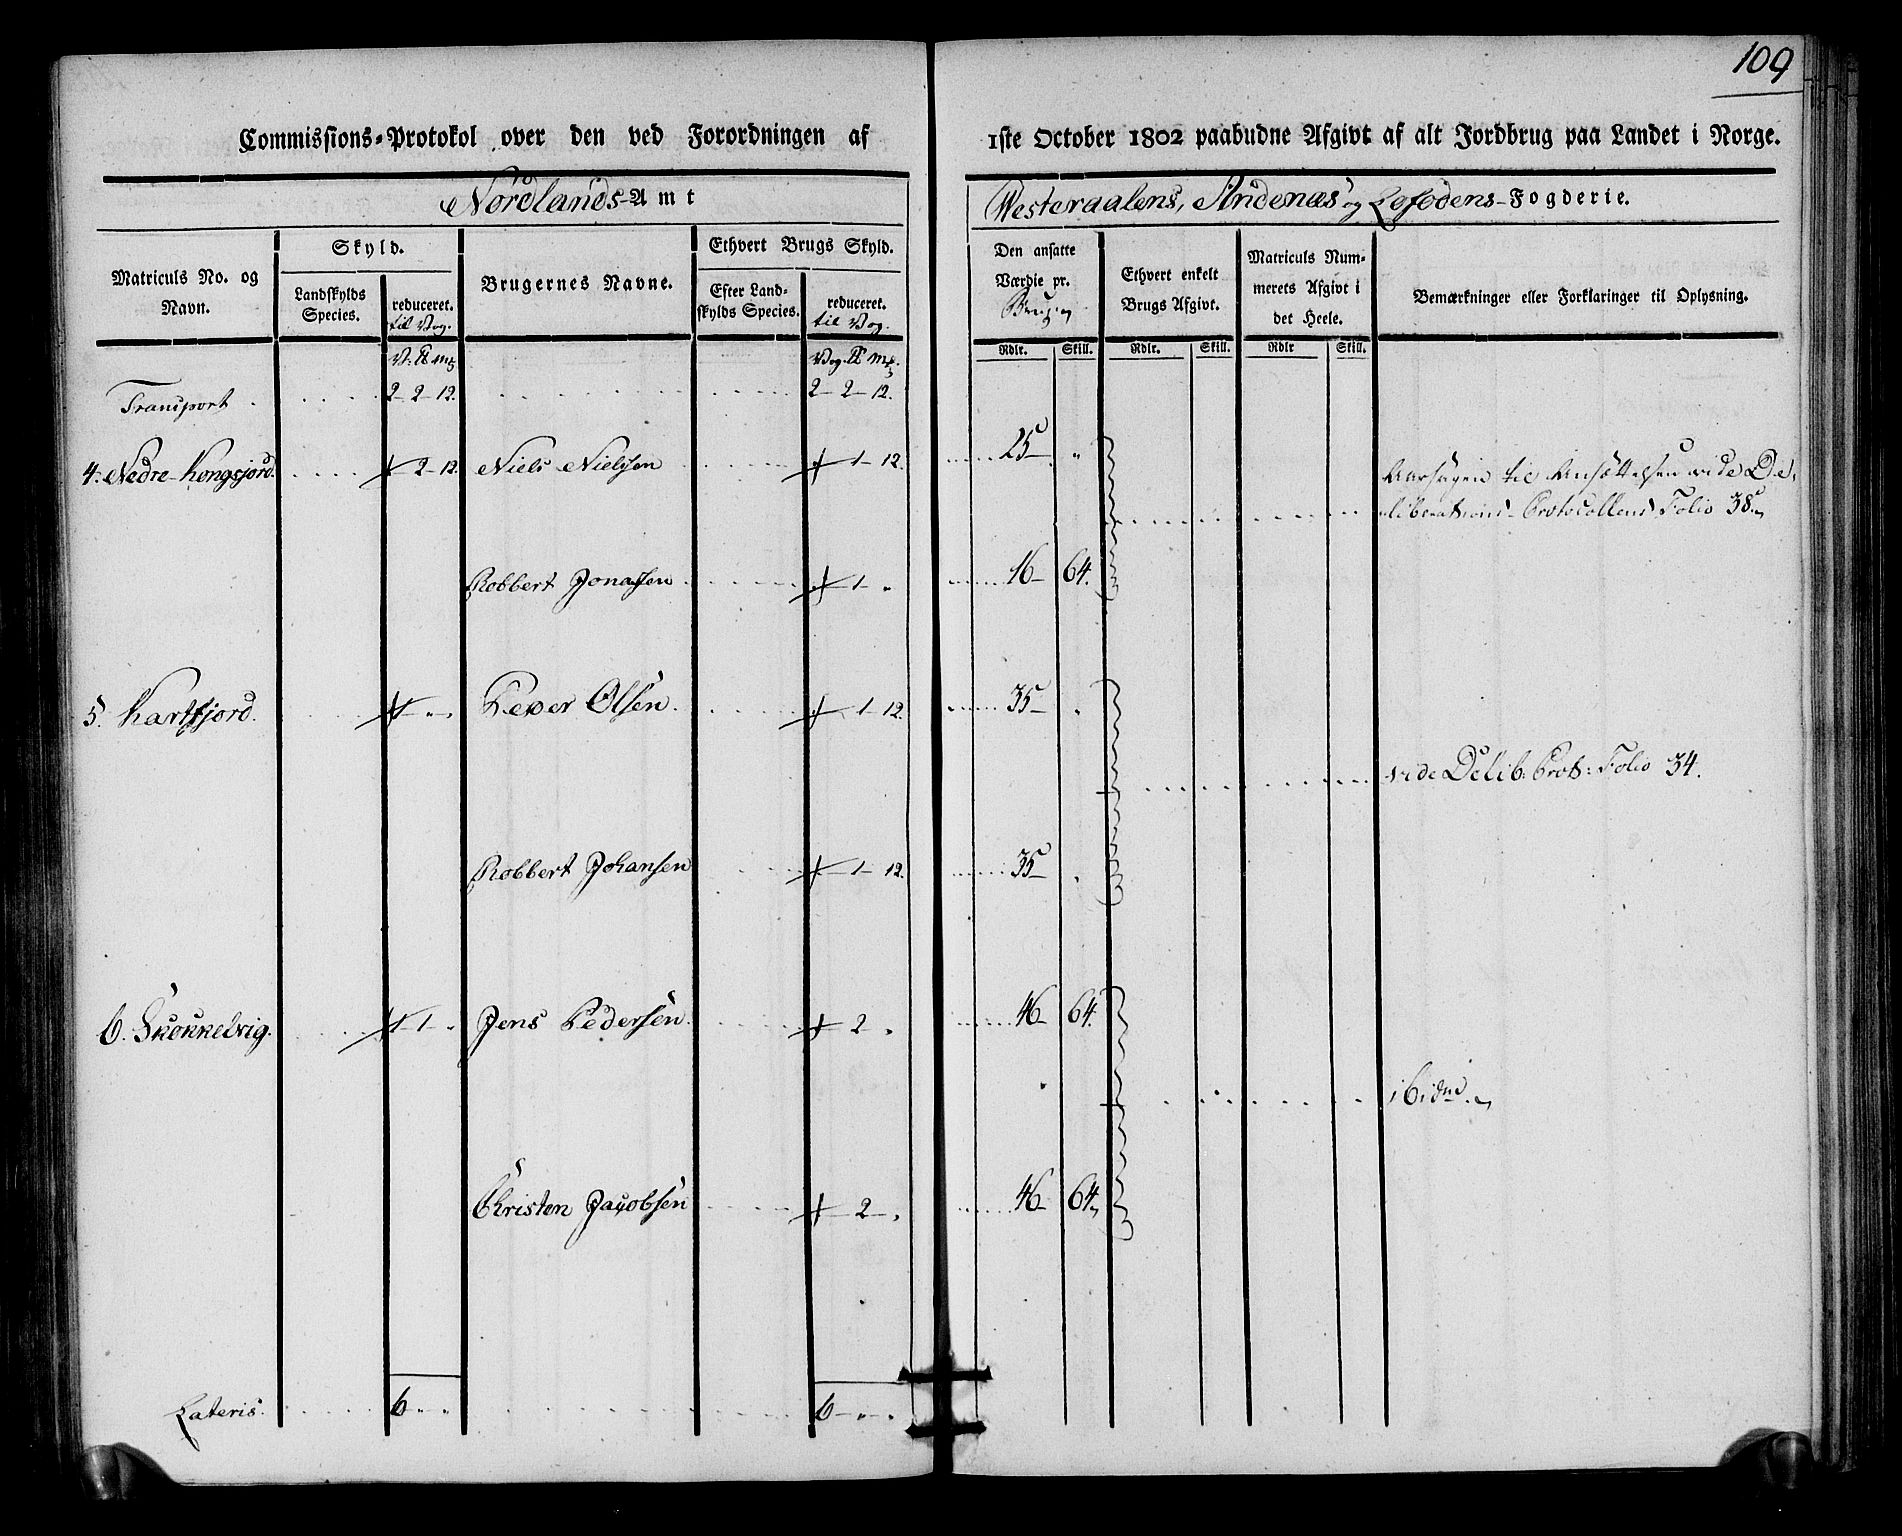 109
Commissions-Protokol over den ved Forordningen af 1ste October 1802 paabudne Afgivt af alt Jordbrug paa Landet i Norge.
Nordlands-Amt
Westeraalens, Andenæs og Lofodens-Fogderie.
Matriculs No. og Navn.
Skyld.
Landskylds Species.
reduceret.
til Vog.
Brugernes Navne.
Ethvert Brugs Skyld.
Efter Landskylds Species.
reduceret.
til Vog.
Den ansatte Værdie pr.
Ethvert enkelt Brugs Afgivt.
Matriculs Nummerets Afgivt i det Heele.
Bemærkninger eller Forklaringer til Oplysning.
Rdlr. Skill. Rdlr. Skill. Rdlr Skill.
V: ℔ mk Vog. ℔ mk.
Transport 2-2-12. 2-2-12.
4. Nedre-Kongsjord. 2-12. Niels Nielsen 1-12. 25 "
Aarsagen til Ansættelsen vide De-
liberations-Protocollens Folio 38.
Robbert Jonassen 1 - " 16- 64.
5. Kartfjord. 1 - " Peder Olsen. 1-12. 35- "
vide Delib: Prot: Folio 34.
Robbert Johansen 1-12. 35- "
6. Skonkelvig. 1 1 " Jens Pedersen. 2 " 46- 64.
ibidm.
Christen Jacobsen 2 - " 46- 64.
Lateris. 6 - " " 6 - " "